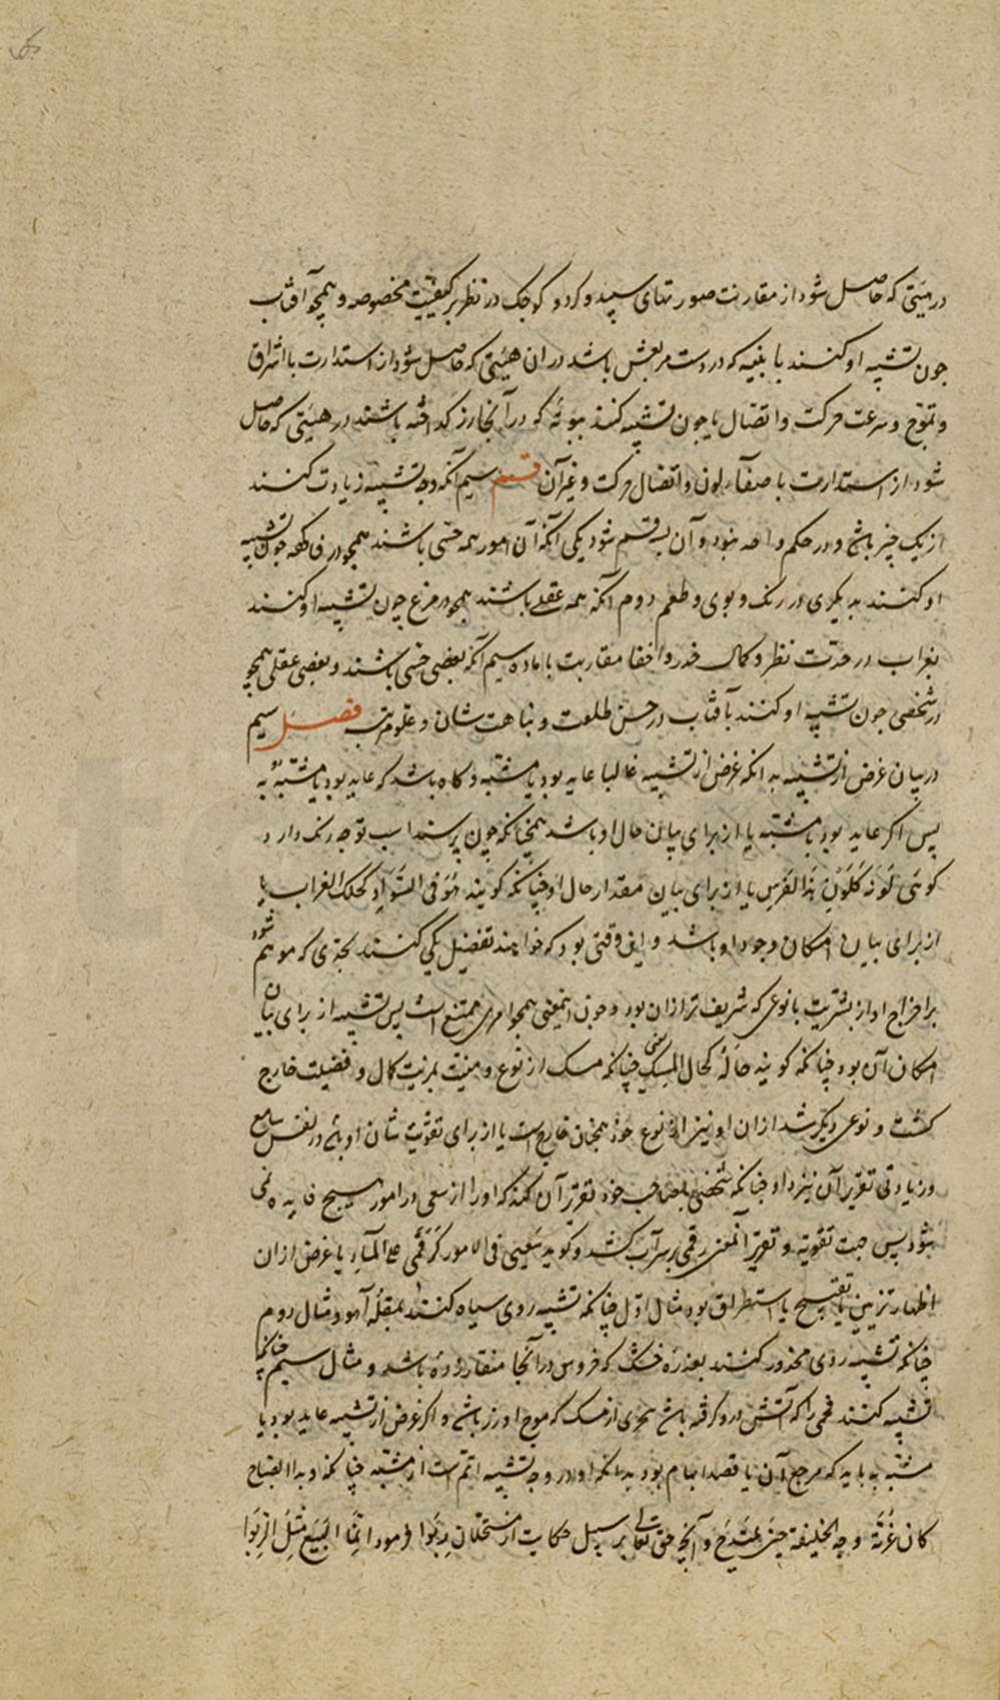 در هیئتی که حاصل شود از مقارنت صورتهای سپید و کرد و کوچک در نظر بر کیفیت مخصوصه و همچو آفتاب
جون تشبیه او کنند با بنیه که در دست مرتعش باشد در ان هیئتی که حاصل شود از استدارت با اشراق
و تموج و سرعت حرکت و اتصال یا جون تشبیه کنند ببوتهٔ که در آنجا زر کداخته باشند در هیئتی که حاصل
شود از استدارت با صفآء لون و اتصال حرکت و غیر آن قسم سیم آنکه وجه تشبیه زیادت کنند
از یک چیز باشد و در حکم واحد نبود و آن بسه قسم شود یکی آنکه آن امور همه حسی باشند همجو در فاکهه جون تشبیه
او کنند بدیکری در رنک و بوی و طعم دوم آنکه همه عقلی باشند همجو در مرغ چون تشبیه او کنند
بغراب در حدت نظر و کمال حذر و اخفا مقاربت با ماده سیم آنکه بعضی حسی باشند و بعضی عقلی همجو
در شخصی جون تشبیه او کنند بآفتاب در حسن طلعت و نباهت شان و علو مرتبه فصل سیم
در بیان غرض از تشبیه بدانکه غرض از تشبیه غالبا عاید بود با مشبه و کاه باشد که عاید بود با مشبه به
پس اکر عاید بود با مشبه یا از برای بیان حال او باشد همچنانکه چون پرسند اسب تو چه رنک دارد
کوئی لونه کلون هذا الفرس یا از برای بیان مقدار حال او چنانکه کویند هو فی السواد کحلک الغراب یا
از برای بیان امکان وجود او باشد و این وقتی بود که خواهند تفضیل یکی کنند بحدی که موهم شود
بر اخراج او از بشریت با نوعی که شریف تر از ان بود و جون اینمعنی همجو امری ممتنع است پس تشبیه از برای بیان
امکان آن بود چنانکه کویند حاله کحال المسک یعنی چنانکه مسک از نوع دمیت بمزیت کمال و فضیلت خارج
کشت و نوعی دیکر شد از ان او نیز از نوع خود همچنان خارج است یا از برای تقویت شان او باشد در نفس سامع
و زیادتی تقریر آن نزد او چنانکه شخصی با صاحب خود تقریر آن کند که اورا از سعی در امور هیچ فایده نمی
شود پس جهت تقویت و تقریر آنمعنی رقمی بر سر آب کشد و کوید سعیی فی الامور کرقمی علی المآء یا غرض از ان
اظهار تزیین یا تقبیح یا استطراق بود مثال اول چنانکه تشبیه روی سیاه کنند بمقلهٔ آهو و مثال دوم
چنانکه تشبیه روی مجدور کنند بعذرهٔ خشک که خروس در آنجا منقار زده باشد و مثال سیم چنانکه
تشبیه کنند فحمی را که آتش درو کرفته باشد ببحری از مسک که موج او زر باشد و اکر غرض از تشبیه عاید بود با
مشبه به باید که مرجع آن یا قصد ابهام بود بدانکه او در وجه تشبیه اتم است از مشبه چنانکه و بدا الصباح
کان غرته وجه الخلیفة حین یمتدح و آنچه حق تعالی بر سبیل حکایت از مستحلان ربوا فرمود انما البیع مثل الربوا